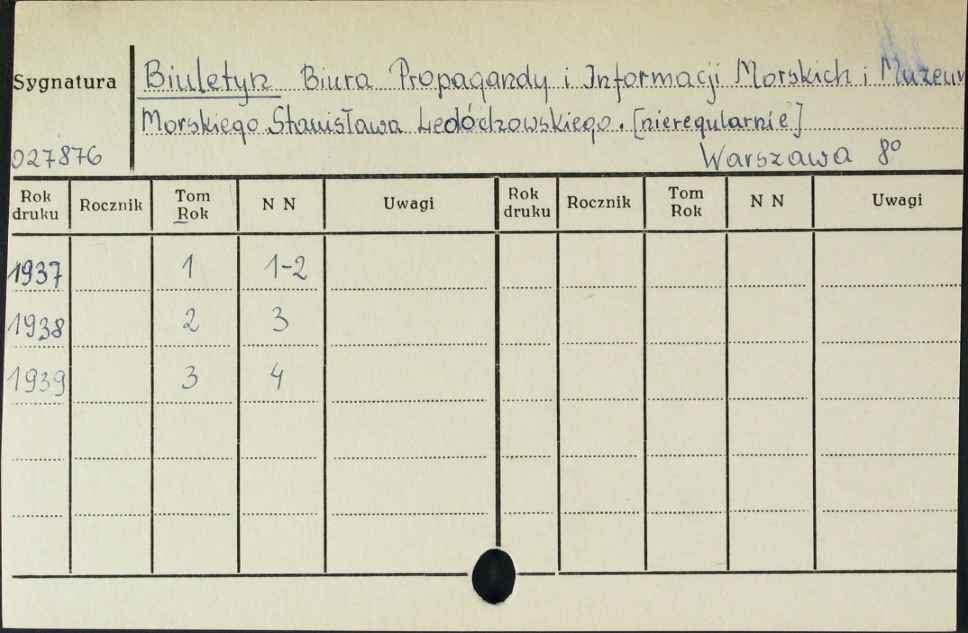 Sygnatura Biuletyn Biura Propagandy i Informacji Morskich i Muzeum
Morskiego Stanisława Ledóchowskiego. [nieregularnie]
027876 Warszawa 8º
Rok druku Rocznik Tom Rok N N Uwagi Rok druku Rocznik Tom Rok N N Uwagi
1937 1 1-2
1938 2 3
1939 3 4